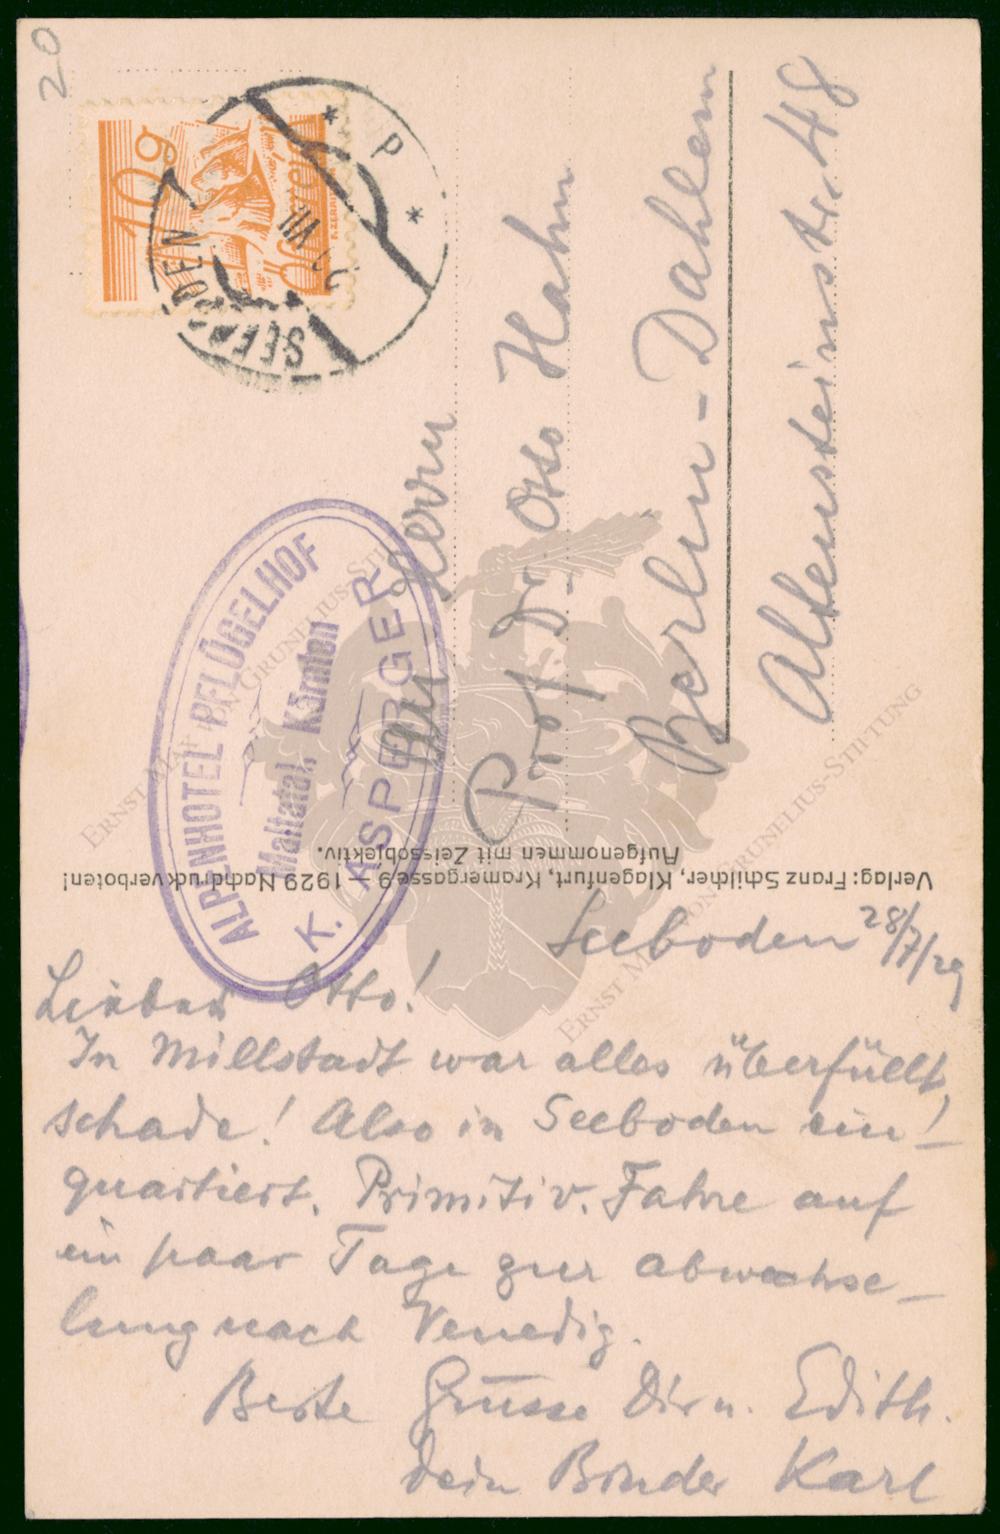 20
10g
Österreich
SEEBODEN
* P *
VII
ALPENHOTEL PFLÜGELHOF
Maltatal, Kärnten
K. ASPERGER
An Herrn
Prof Dr. Otto Hahn
Berlin-Dahlem
Altensteinstr. 48
Verlag: Franz Schilcher, Klagenfurt, Kramergasse 9 – 1929 Nachdruck verboten!
Aufgenommen mit Zeissobjektiv.
Seeboden 28/7/29
Lieber Otto!
In Millstadt war alles überfüllt,
schade! Also in Seeboden ein-
quartiert. Primitiv. Fahre auf
ein paar Tage zur abwechse-
lung nach Venedig.
Beste Grüsse Dir u. Edith.
Dein Bruder Karl
ERNST MAX VON GRUNELIUS-STIFTUNG
ERNST MAX VON GRUNELIUS-STIFTUNG